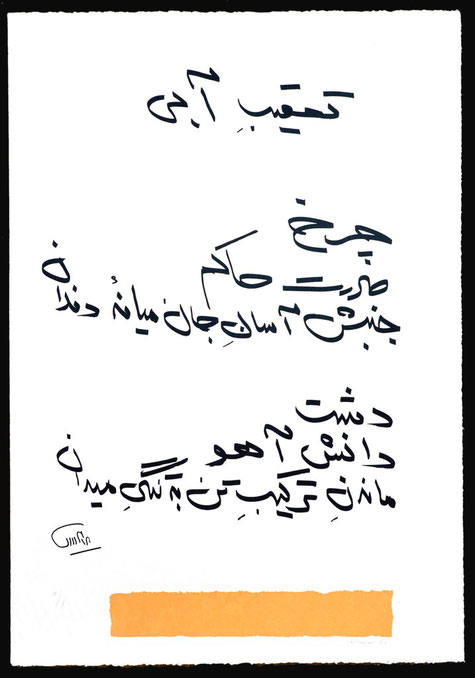 تعقیبِ آبی
چرخ
ضربت حاکم
جنبش آسانِ جان میانهٔ دندان
دشت
دانش آهو
ماندنِ ترکیبِ تن به تنگیِ میدان